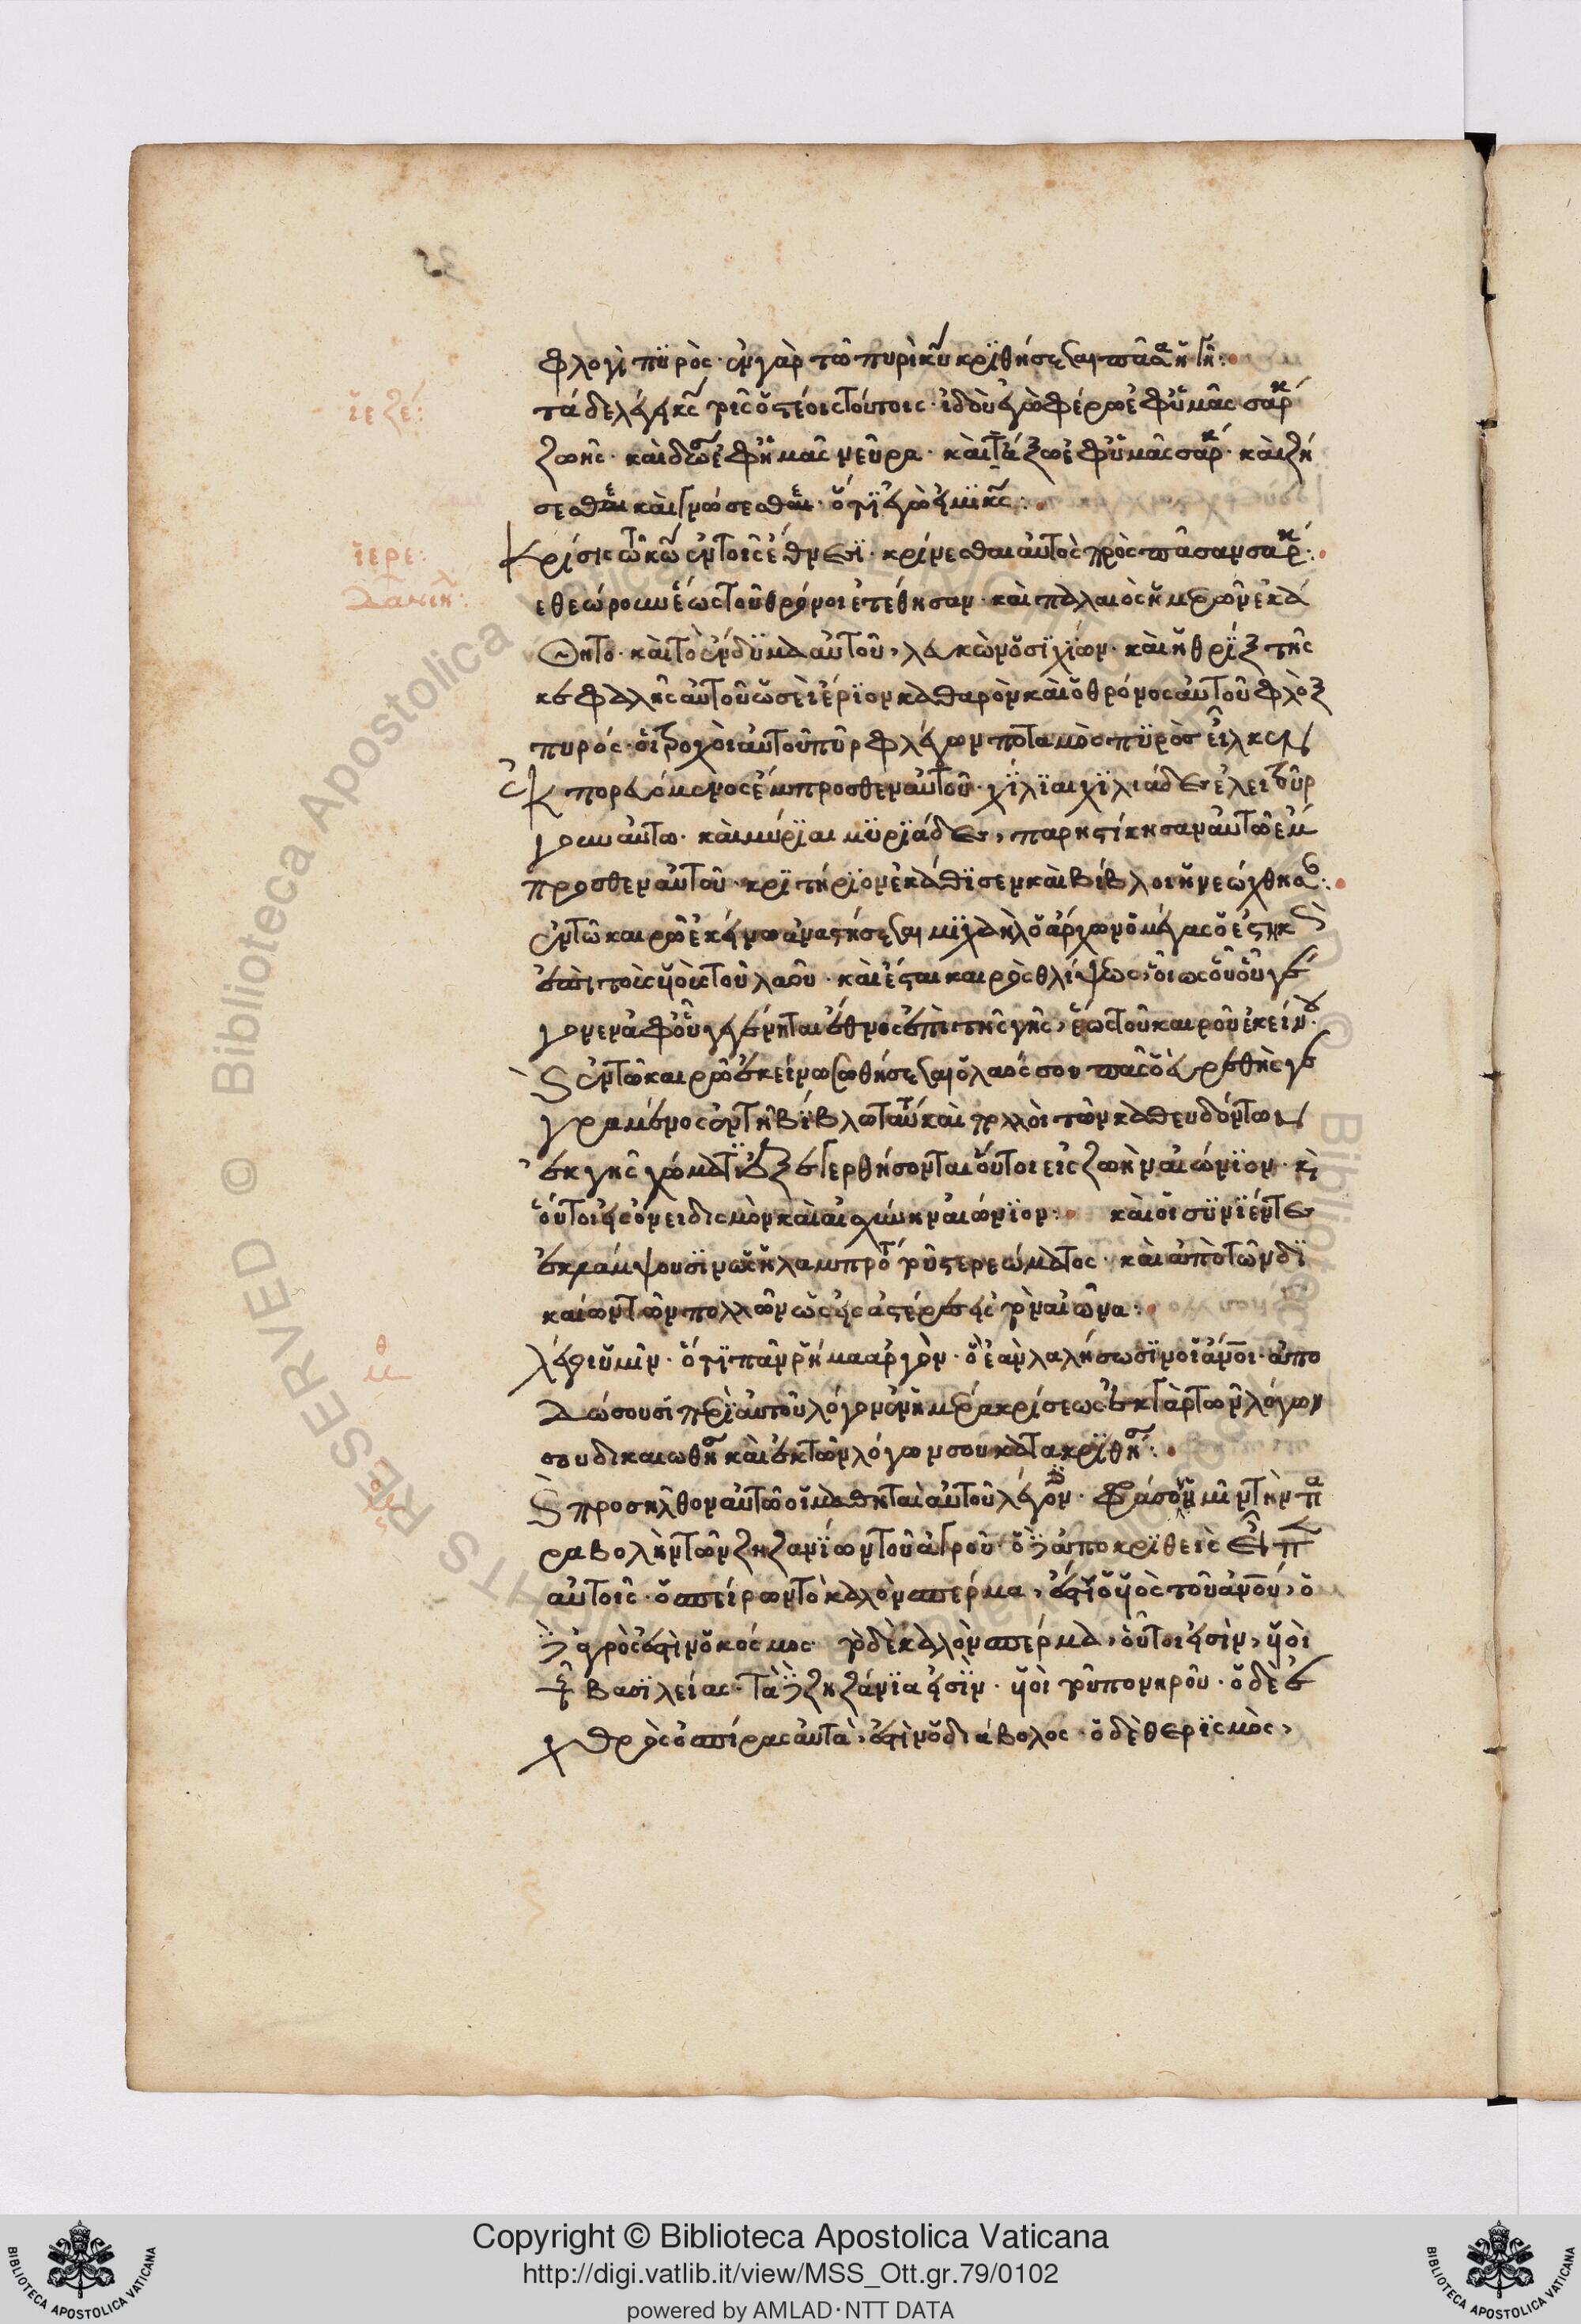 φλογὶ πϋρὸς· ἐν γὰρ τῶ πυρὶ κυ κρϊθήσεται πᾶσα ἡ γῆ:
ϊεζε:
τάδε λέγει κς τοῖς ὀστέοις τούτοις· ἰδοὺ ἐγὼ φέρω ἐφ ὑμᾶς σαρκ
ζωῆς· καὶ δώσω ἐφ ἡμᾶς νεῦρα· καὶ τάξω ἐφ ὑμᾶς σαρκ· καὶ ζή
σεσθαι καὶ γνώσεσθαι· ὅτϊ ἐγὼ εἰμϊ κς:
ϊερε:
κρίσις τῶ κω ἐν τοῖς ἔθνεσϊ· κρίνεσθαι αὐτὸς πρὸς πᾶσαν σαρκ:
δανιηλ:
εθεώρουν ἕως τοῦ θρόνοι ἐτέθησαν· καὶ παλαιὸς ἡμερῶν ἐκά
θητο· καὶ τὸ ἐνδϋμα αὐτοῦ, λευκὼν ὁσϊ χϊών· καὶ ἡ θρὶξ τῆς
κεφαλῆς αὐτοῦ ὡσεὶ ἐρϊον καθαρὸν καὶ ὁ θρόνος αὐτοῦ φλὸξ
πυρός· οἱ τροχοὶ αὐτοῦ πῦρ φλέγων ποταμὸς πϋρὸσ εἷλκεν
ἐκπορευόμενος ἔμπροσθεν αὐτοῦ· χϊλϊαι χϊλιάδες ἐλειτούρ
γουν αὐτω· καὶ μύρϊαι μϋρϊάδες, παρηστίκησαν αὐτῶ ἔμ
προσθεν αὐτοῦ· κρϊτήρϊον ἐκάθϊσεν καὶ βίβλοι ἠνεώχθησαν:
ἐν τῶ καιρῶ ἐκείνω ἀναστήσεται μϊχαὴλ ὁ ἄρχων ὁ μέγας ὁ ἑστηκὼς
ἐπὶ τοὺς ὑιοὺς τοῦ λαοῦ· καὶ ἔσται καιρὸς θλίψεως, οἵως οὐ οὐ γέ
γονεν ἀφ οὗ γεγένηται ἔθνος ἐπὶ τῆς γῆς, ἕως τοῦ καιροῦ ἐκείνου·
καὶ ἐν τῶ καιρῶ ἐκείνω σωθήσεται ὁ λαός σου πᾶς ὁ εὑρεθὴς γε
γραμένος ἐν τῆ βϊβλω ταύτη καὶ πολλοὶ τῶν καθευδόντων
ἐκ γῆς χώματος ἐξεγερθήσονται οὗτοι εἰς ζωὴν αἰώνϊον· καὶ
οὗτοι εἰς ὀνειδισμὸν καὶ αἰσχύνην αἰώνϊον: καὶ οἱ σϋνϊέντες
ἐκλάμψουσϊν ὡς ἡ λαμπρότης τοῦ στερεώματος· καὶ ἀπὸ τῶν δϊ
καίων τῶν πολλῶν ὡς εἰς ἀστέρας εἰς τὸν αἰῶνα:
μθ
λέγω ὑμῖν· ὅτϊ πᾶν ῥῆμα ἀργὸν· ὃ ἐὰν λαλήσωσϊν οἱ ἀνοι· ἀπο
δώσουσι περὶ αὐτοῦ λόγον ἐν ἡμέρα κρίσεως ἐκ γὰρ τῶν λόγων
σου δικαιωθήση καὶ ἐκ τῶν λόγων σου κατακρϊθήση:
καὶ προσῆλθον αὐτῶ οἱ μαθηταὶ αὐτοῦ λέγοντες· φράσον ἡμῖν τὴν πα
ραβολὴν τῶν ζηζανϊων τοῦ ἀγροῦ· ὁ δὲ ἀποκρϊθεὶς εἶπεν
αὐτοῖς· ὁ σπείρων τὸ καλὸν σπέρμα, ἐστϊ ὁ ὑιὸς τοῦ ἀνου, ὁ
δὲ ἀγρὸς ἐστὶν ὁ κόσμος· τὸ δὲ καλὸν σπέρμα, οὗτοι εἰσὶν, ὑιοὶ
τῆς βασϊλείας· τὰ δὲ ζηζάνϊα εἰσϊν· ὑιοὶ τοῦ πονηροῦ· ὁ δὲ ἐ
χθρὸς ὁ σπίρας αὐτὰ, ἐστὶν ὁ διάβολος· ὁ δὲ θερϊσμὸς,
Copyright © Biblioteca Apostolica Vaticana
http://digi.vatlib.it/view/MSS_Ott.gr.79/0102
powered by AMLAD·NTT DATA